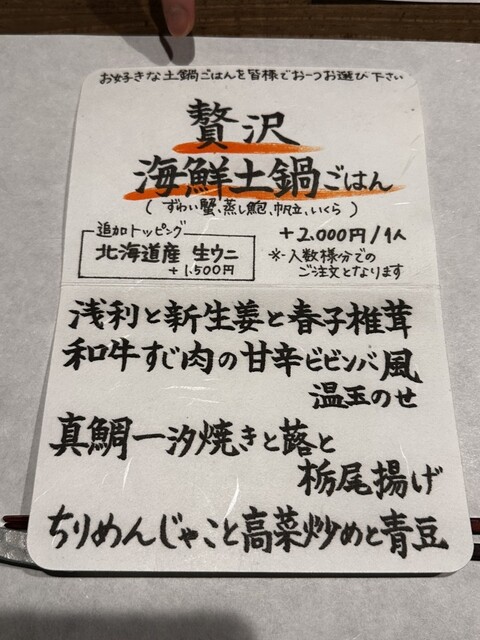 お好きな土鍋ごはんを皆様でお一つお選び下さい
贅沢
海鮮土鍋ごはん
(ずわい蟹、蒸し鮑、帆立、いくら)
追加トッピング
北海道産 生ウニ
+1,500円
+2,000円/1人
※人数様分での
ご注文となります
浅利と新生姜と春子椎茸
和牛すじ肉の甘辛ビビンバ風
温玉のせ
真鯛一汐焼きと蕗と
栃尾揚げ
ちりめんじゃこと高菜炒めと青豆